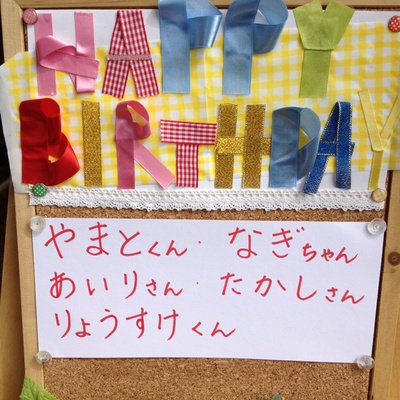 HAPPY
BIRTHDAY
やまとくん・なぎちゃん
あいりさん・たかしさん
りょうすけくん